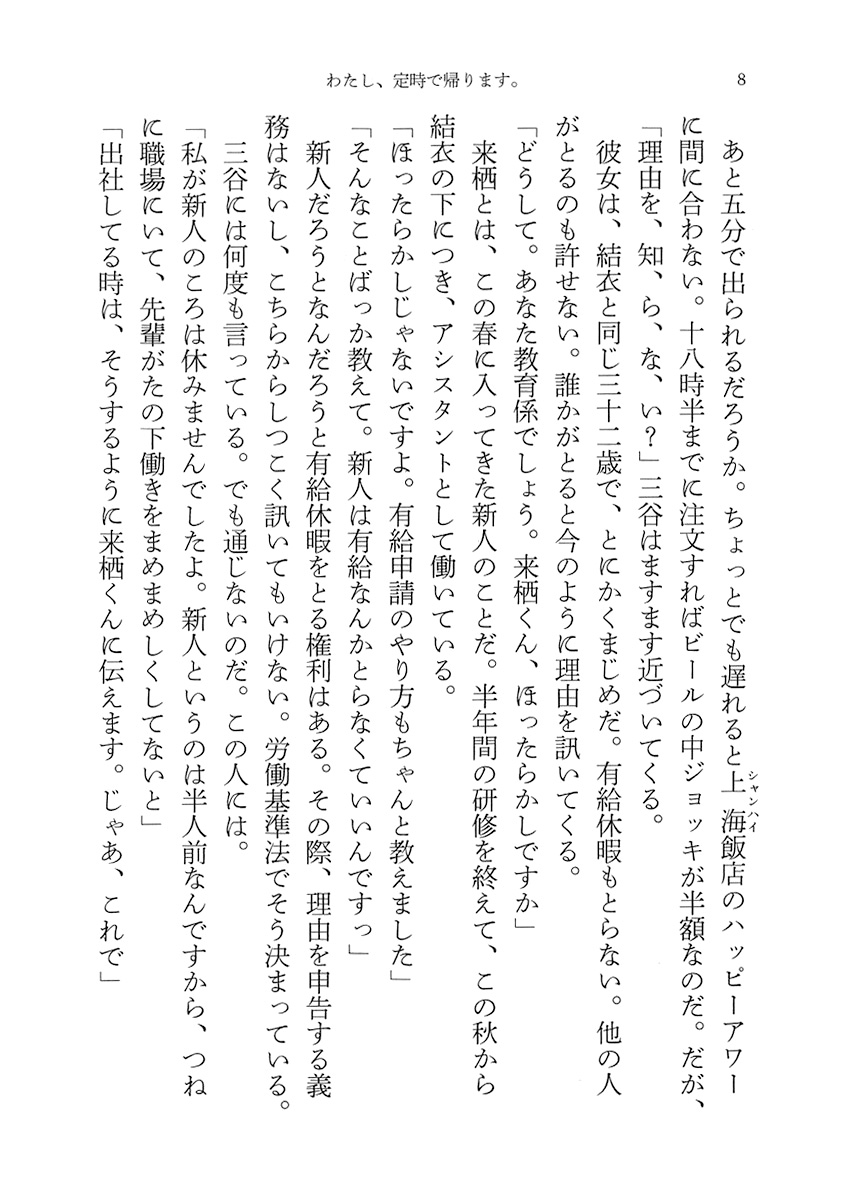 わたし、定時で帰ります。
8
あと五分で出られるだろうか。ちょっとでも遅れると上海飯店のハッピーアワー
シャンハイ
に間に合わない。十八時半までに注文すればビールの中ジョッキが半額なのだ。だが、
「理由を、知、ら、な、い？」三谷はますます近づいてくる。
彼女は、結衣と同じ三十二歳で、とにかくまじめだ。有給休暇もとらない。他の人
がとるのも許せない。誰かがとると今のように理由を訊いてくる。
「どうして。あなた教育係でしょう。来栖くん、ほったらかしですか」
来栖とは、この春に入ってきた新人のことだ。半年間の研修を終えて、この秋から
結衣の下につき、アシスタントとして働いている。
「ほったらかしじゃないですよ。有給申請のやり方もちゃんと教えました」
「そんなことばっか教えて。新人は有給なんかとらなくていいんですっ」
新人だろうとなんだろうと有給休暇をとる権利はある。その際、理由を申告する義
務はないし、こちらからしつこく訊いてもいけない。労働基準法でそう決まっている。
三谷には何度も言っている。でも通じないのだ。この人には。
「私が新人のころは休みませんでしたよ。新人というのは半人前なんですから、つね
に職場にいて、先輩がたの下働きをまめまめしくしてないと」
「出社してる時は、そうするように来栖くんに伝えます。じゃあ、これで」